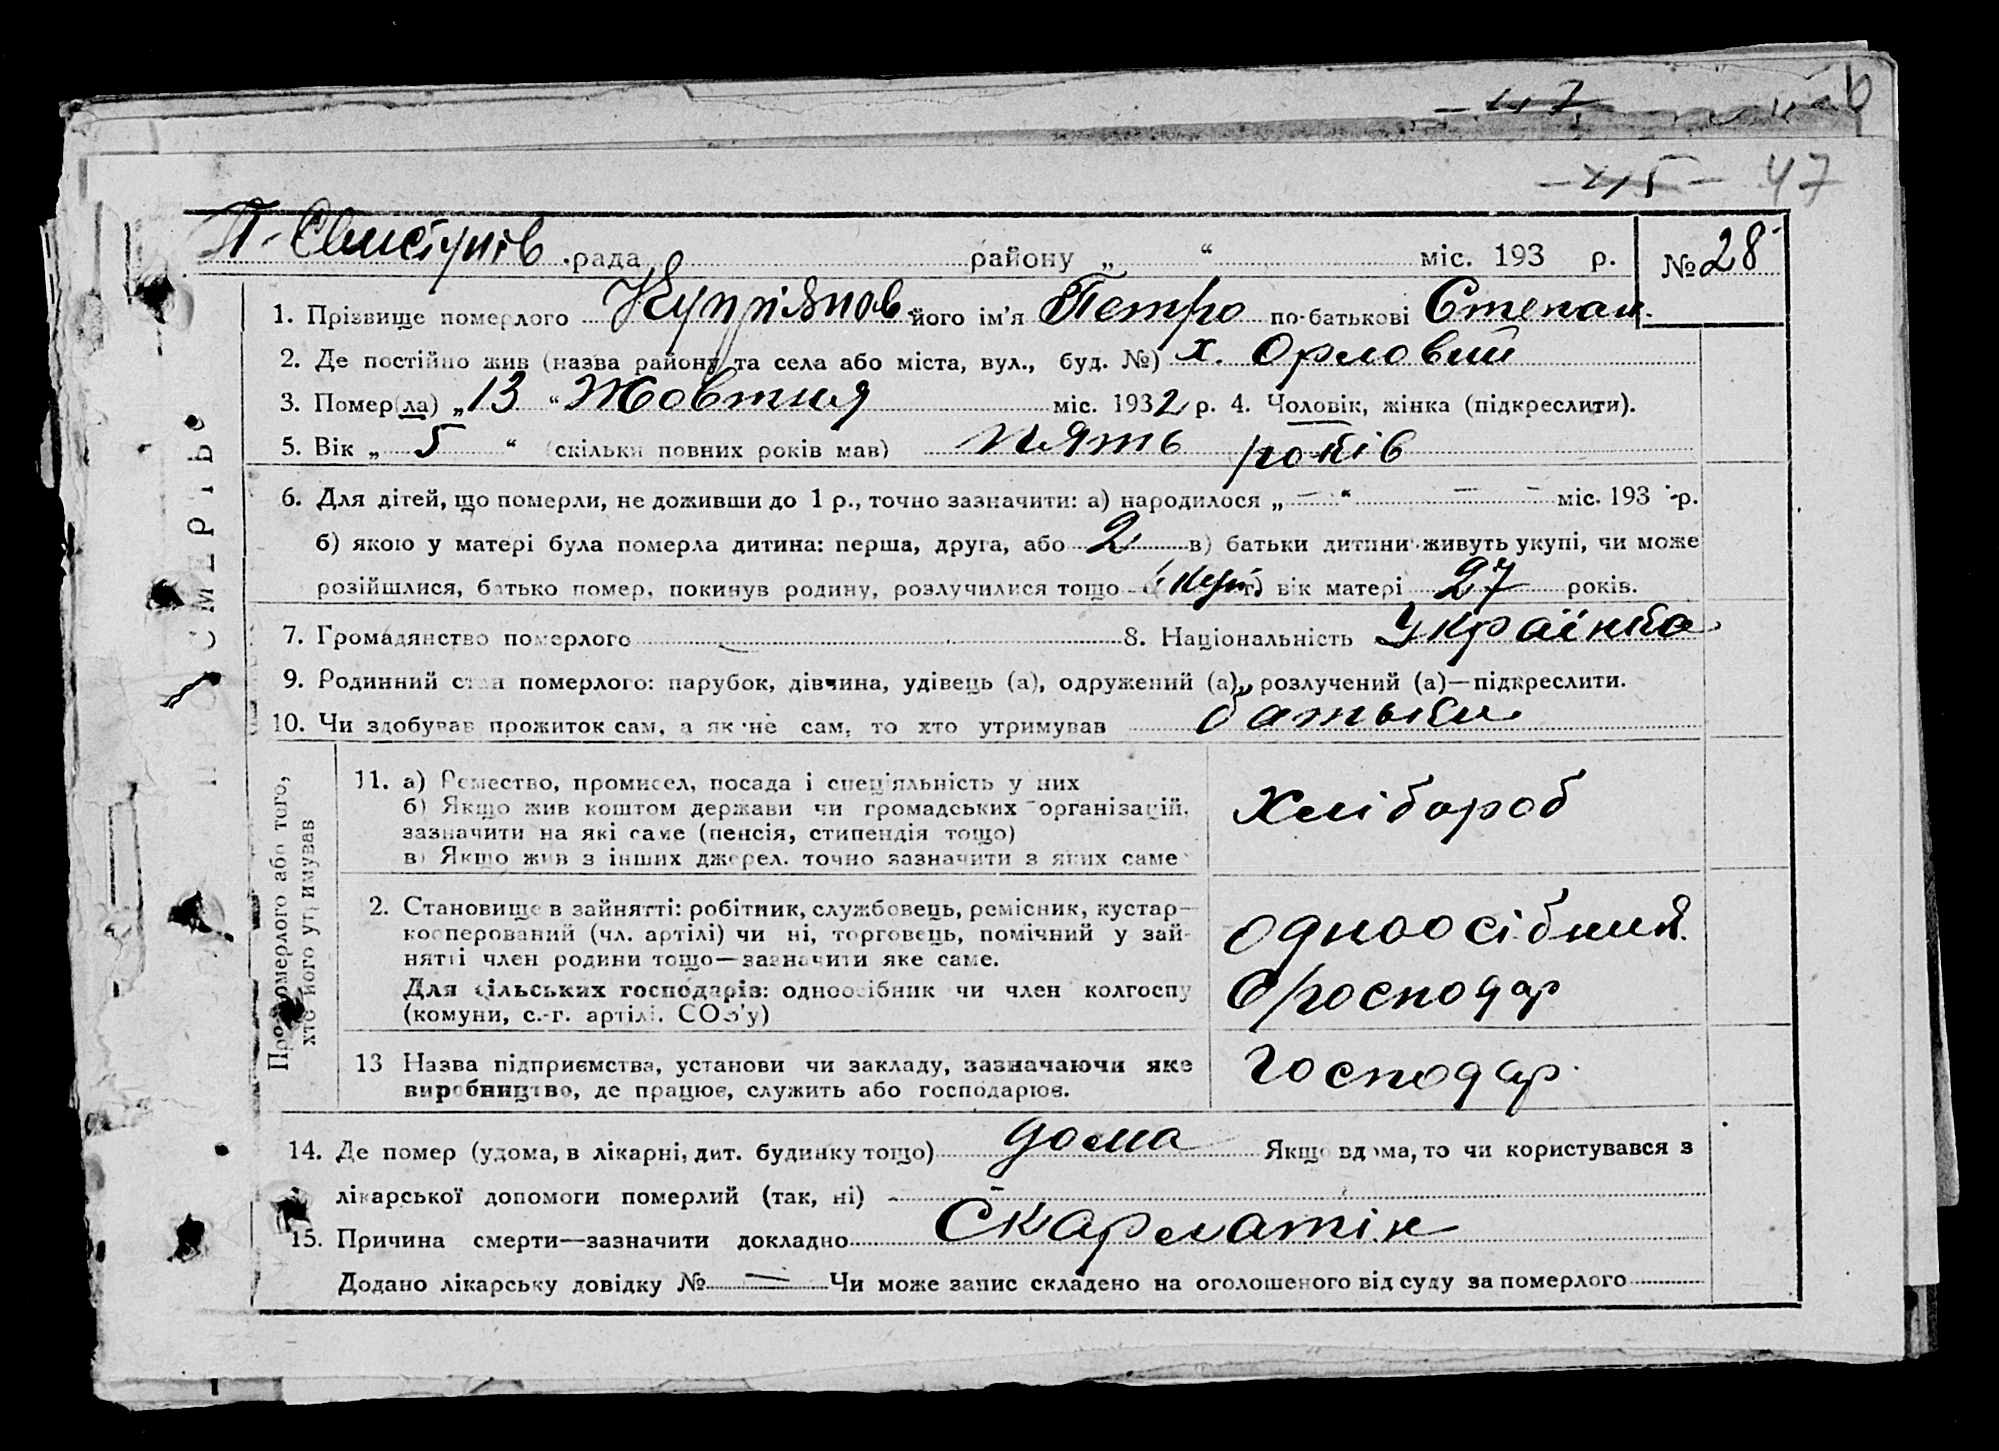 47
45 47
П-Свистунів рада району „ “ міс. 193 р. № 28
1. Прізвище померлого Купріянов його ім'я Петро по-батькові Степан.
2. Де постійно жив (назва району та села або міста, вул., буд. №) х. Орловий
3. Помер(ла) „13“ Жовтня міс. 1932 р. 4. Чоловік, жінка (підкреслити).
5. Вік „ 5 “ (скільки повних років мав) пять років
6. Для дітей, що померли, не доживши до 1 р., точно зазначити: а) народилося „ — “ — — міс. 193 - р.
б) якою у матері була померла дитина: перша, друга, або 2 в) батьки дитини живуть укупі, чи може
розійшлися, батько помер, покинув родину, розлучилися тощо г) вік матері 27 років.
7. Громадянство померлого 8. Національність Українка
9. Родинний стан померлого: парубок, дівчина, удівець (а), одружений (а), розлучений (а)—підкреслити.
10. Чи здобував прожиток сам, а як не сам, то хто утримував батьки
СМЕРТЬ
Про померлого або того,
хто його утримував
11. а) Ремество, промисел, посада і спеціяльність у них
б) Якщо жив коштом держави чи громадських організацій,
зазначити на які саме (пенсія, стипендія тощо)
в) Якщо жив з інших джерел, точно зазначити з яких саме
Хлібороб
2. Становище в зайнятті: робітник, службовець, ремісник, кустар—
кооперований (чл. артілі) чи ні, торговець, помічний у зай-
нятті член родини тощо—зазначити яке саме.
Для сільських господарів: одноосібник чи член колгоспу
(комуни, с.-г. артілі, СОЗ'у)
одноосібник
господар
13 Назва підприємства, установи чи закладу, зазначаючи яке
виробництво, де працює, служить або господарює.
господар
14. Де помер (удома, в лікарні, дит. будинку тощо) дома Якщо вдома, то чи користувався з
лікарської допомоги померлий (так, ні) -
15. Причина смерти—зазначити докладно Скарлатін
Додано лікарську довідку № — Чи може запис складено на оголошеного від суду за померлого